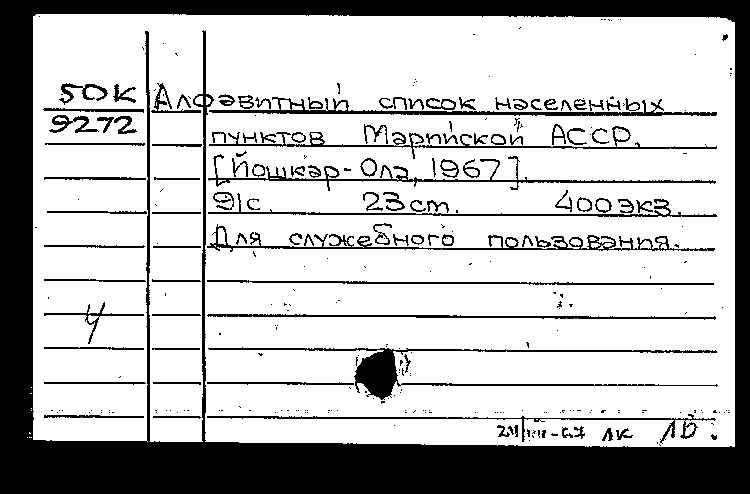 50К Алфавитный список населенных
9272 пунктов Марийской АССР.
[Йошкар-Ола, 1967].
91с. 23cm. 400экз.
Для служебного пользования.
Ч